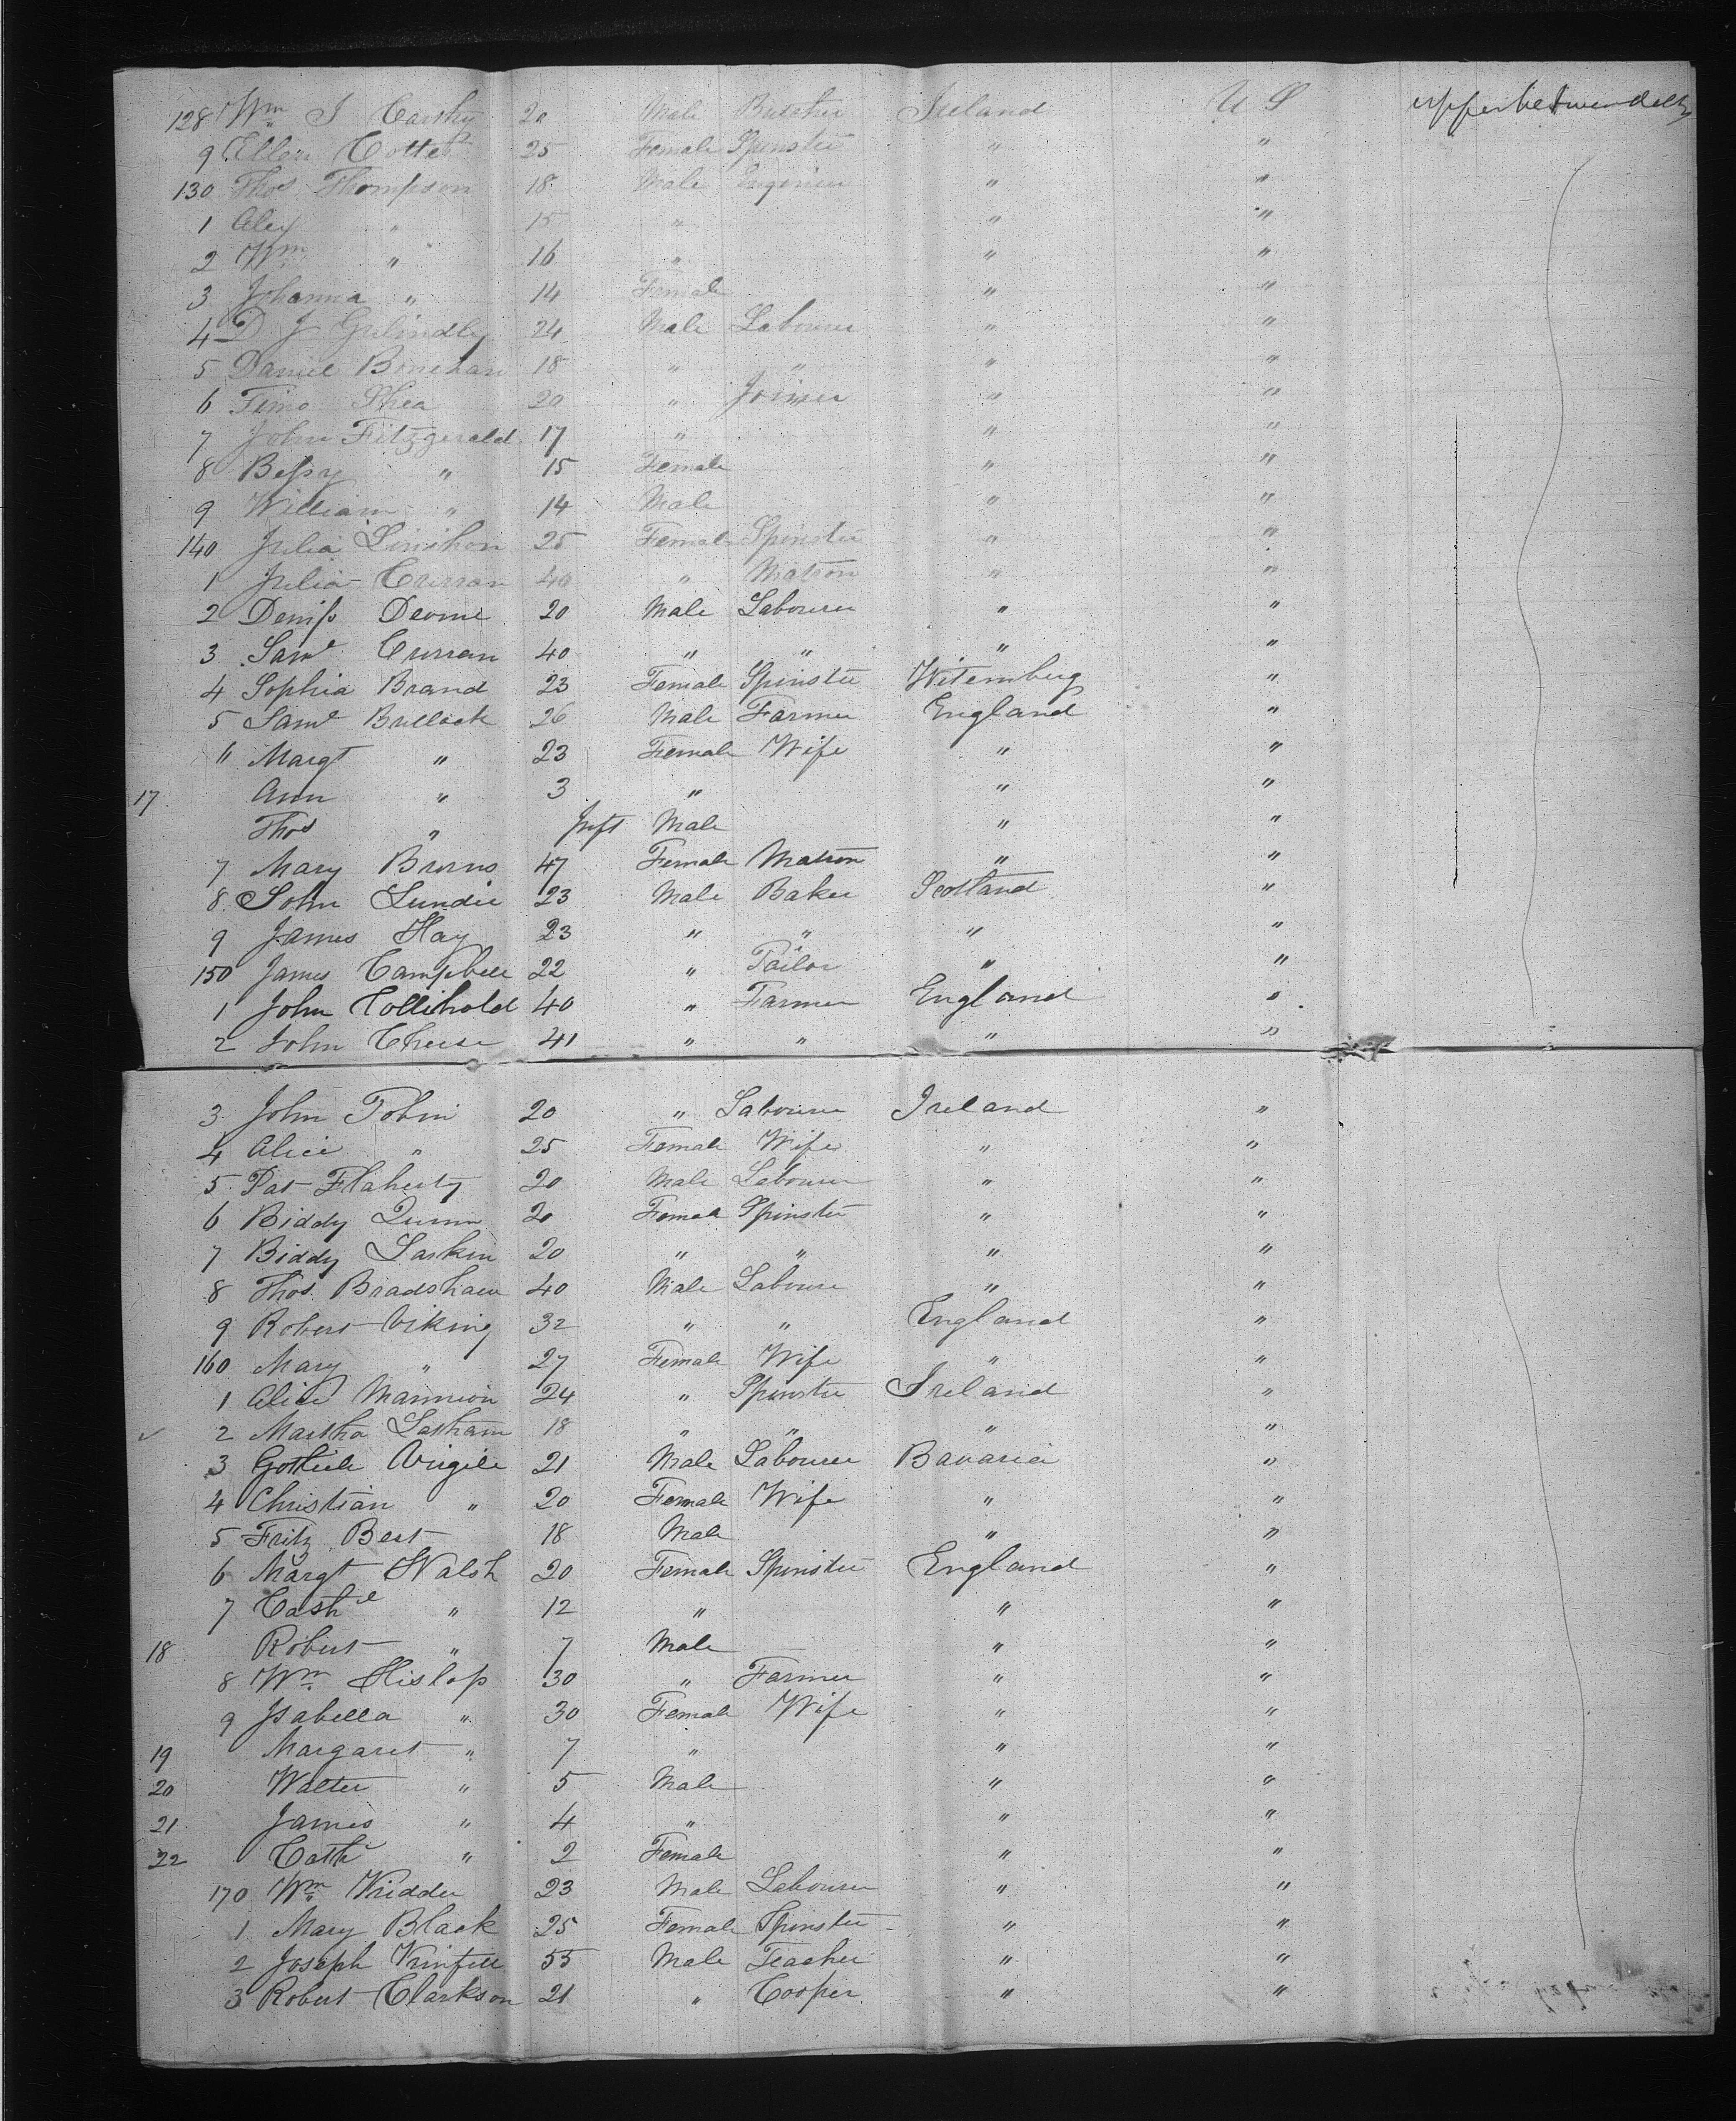 128 Wm J Carthy 20 Male Butcher Ireland U S upper between decks
9 Ellen Cotter 25 Female Spinster " "
130 Thos Thompson 18 Male Engenier " "
1 Alex " 15 " " "
2 Wm " 16 " " "
3 Johanna " 14 Female " "
4 D J 24 Male Labourer " "
5 Daniel 18 " " " "
6 Timo Shea 20 " Joiner " "
7 John Fitzgerald 17 " " "
8 Bessy " 15 Female " "
9 William " 14 Male " "
140 Julia Linihon 25 Female Spinster " "
1 Julia Curran 40 " Matron " "
2 Deniss 20 Male Labourer " "
3 Saml Curran 40 " " " "
4 Sophia Brand 23 Female Spinster Witemburg "
5 Saml Bullock 26 Male Farmer England "
6 Margt " 23 Female Wife " "
17 Ann " 3 " " "
Thos " Inft Male " "
7 Mary Burns 47 Female Matron " "
8 John Lundie 23 Male Baker Scotland "
9 James Hay 23 " " " "
150 James Campbell 22 " Tailor " "
1 John Collihold 40 " Farmer England "
2 John Cheese 41 " " " "
3 John Tobin 20 " Labourer Ireland "
4 Alice " 25 Female Wife " "
5 Pat Flaherty 20 Male Labourer " "
6 Biddy Quinn 20 Female Spinster " "
7 Biddy Larkin 20 " " " "
8 Thos Bradshaw 40 Male Labourer " "
9 Robert Viking 32 " " England "
160 Mary " 27 Female Wife " "
1 Alice Mannion 24 " Spinster Ireland "
2 Martha Latham 18 " " " "
3 Gottieb Virgile 21 Male Labourer Bavaria "
4 Christian " 20 Female Wife " "
5 Fritz Best 18 Male " "
6 Margt Walsh 20 Female Spinster England "
7 Cathe " 12 " " "
18 Robert " 7 Male " "
8 Wm Hislop 30 " Farmer " "
9 Isabella " 30 Female Wife " "
19 Margaret " 7 " " "
20 Walter " 5 Male " "
21 James " 4 " " "
22 Cathe " 2 Female " "
170 Wm Kidder 23 Male Labourer " "
1 Mary Black 25 Female Spinster " "
2 Joseph 55 Male Teacher " "
3 Robert Clarkson 21 " Cooper " "